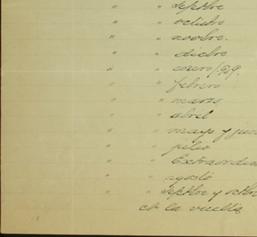 " " Septbre
" " octubre
" " novbre.
" " dicbre
" " enero/929.
" " febrero
" " marzo
" " abril
" " mayo y jun
" " julio
" " Extraordina
" " agosto
" " septbre y octbre
de la vuelta